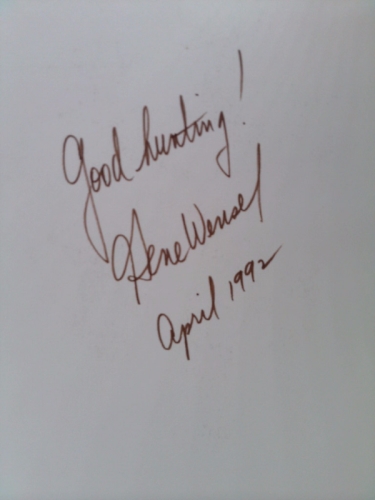 Good hunting!
Gene Wensel
April 1992